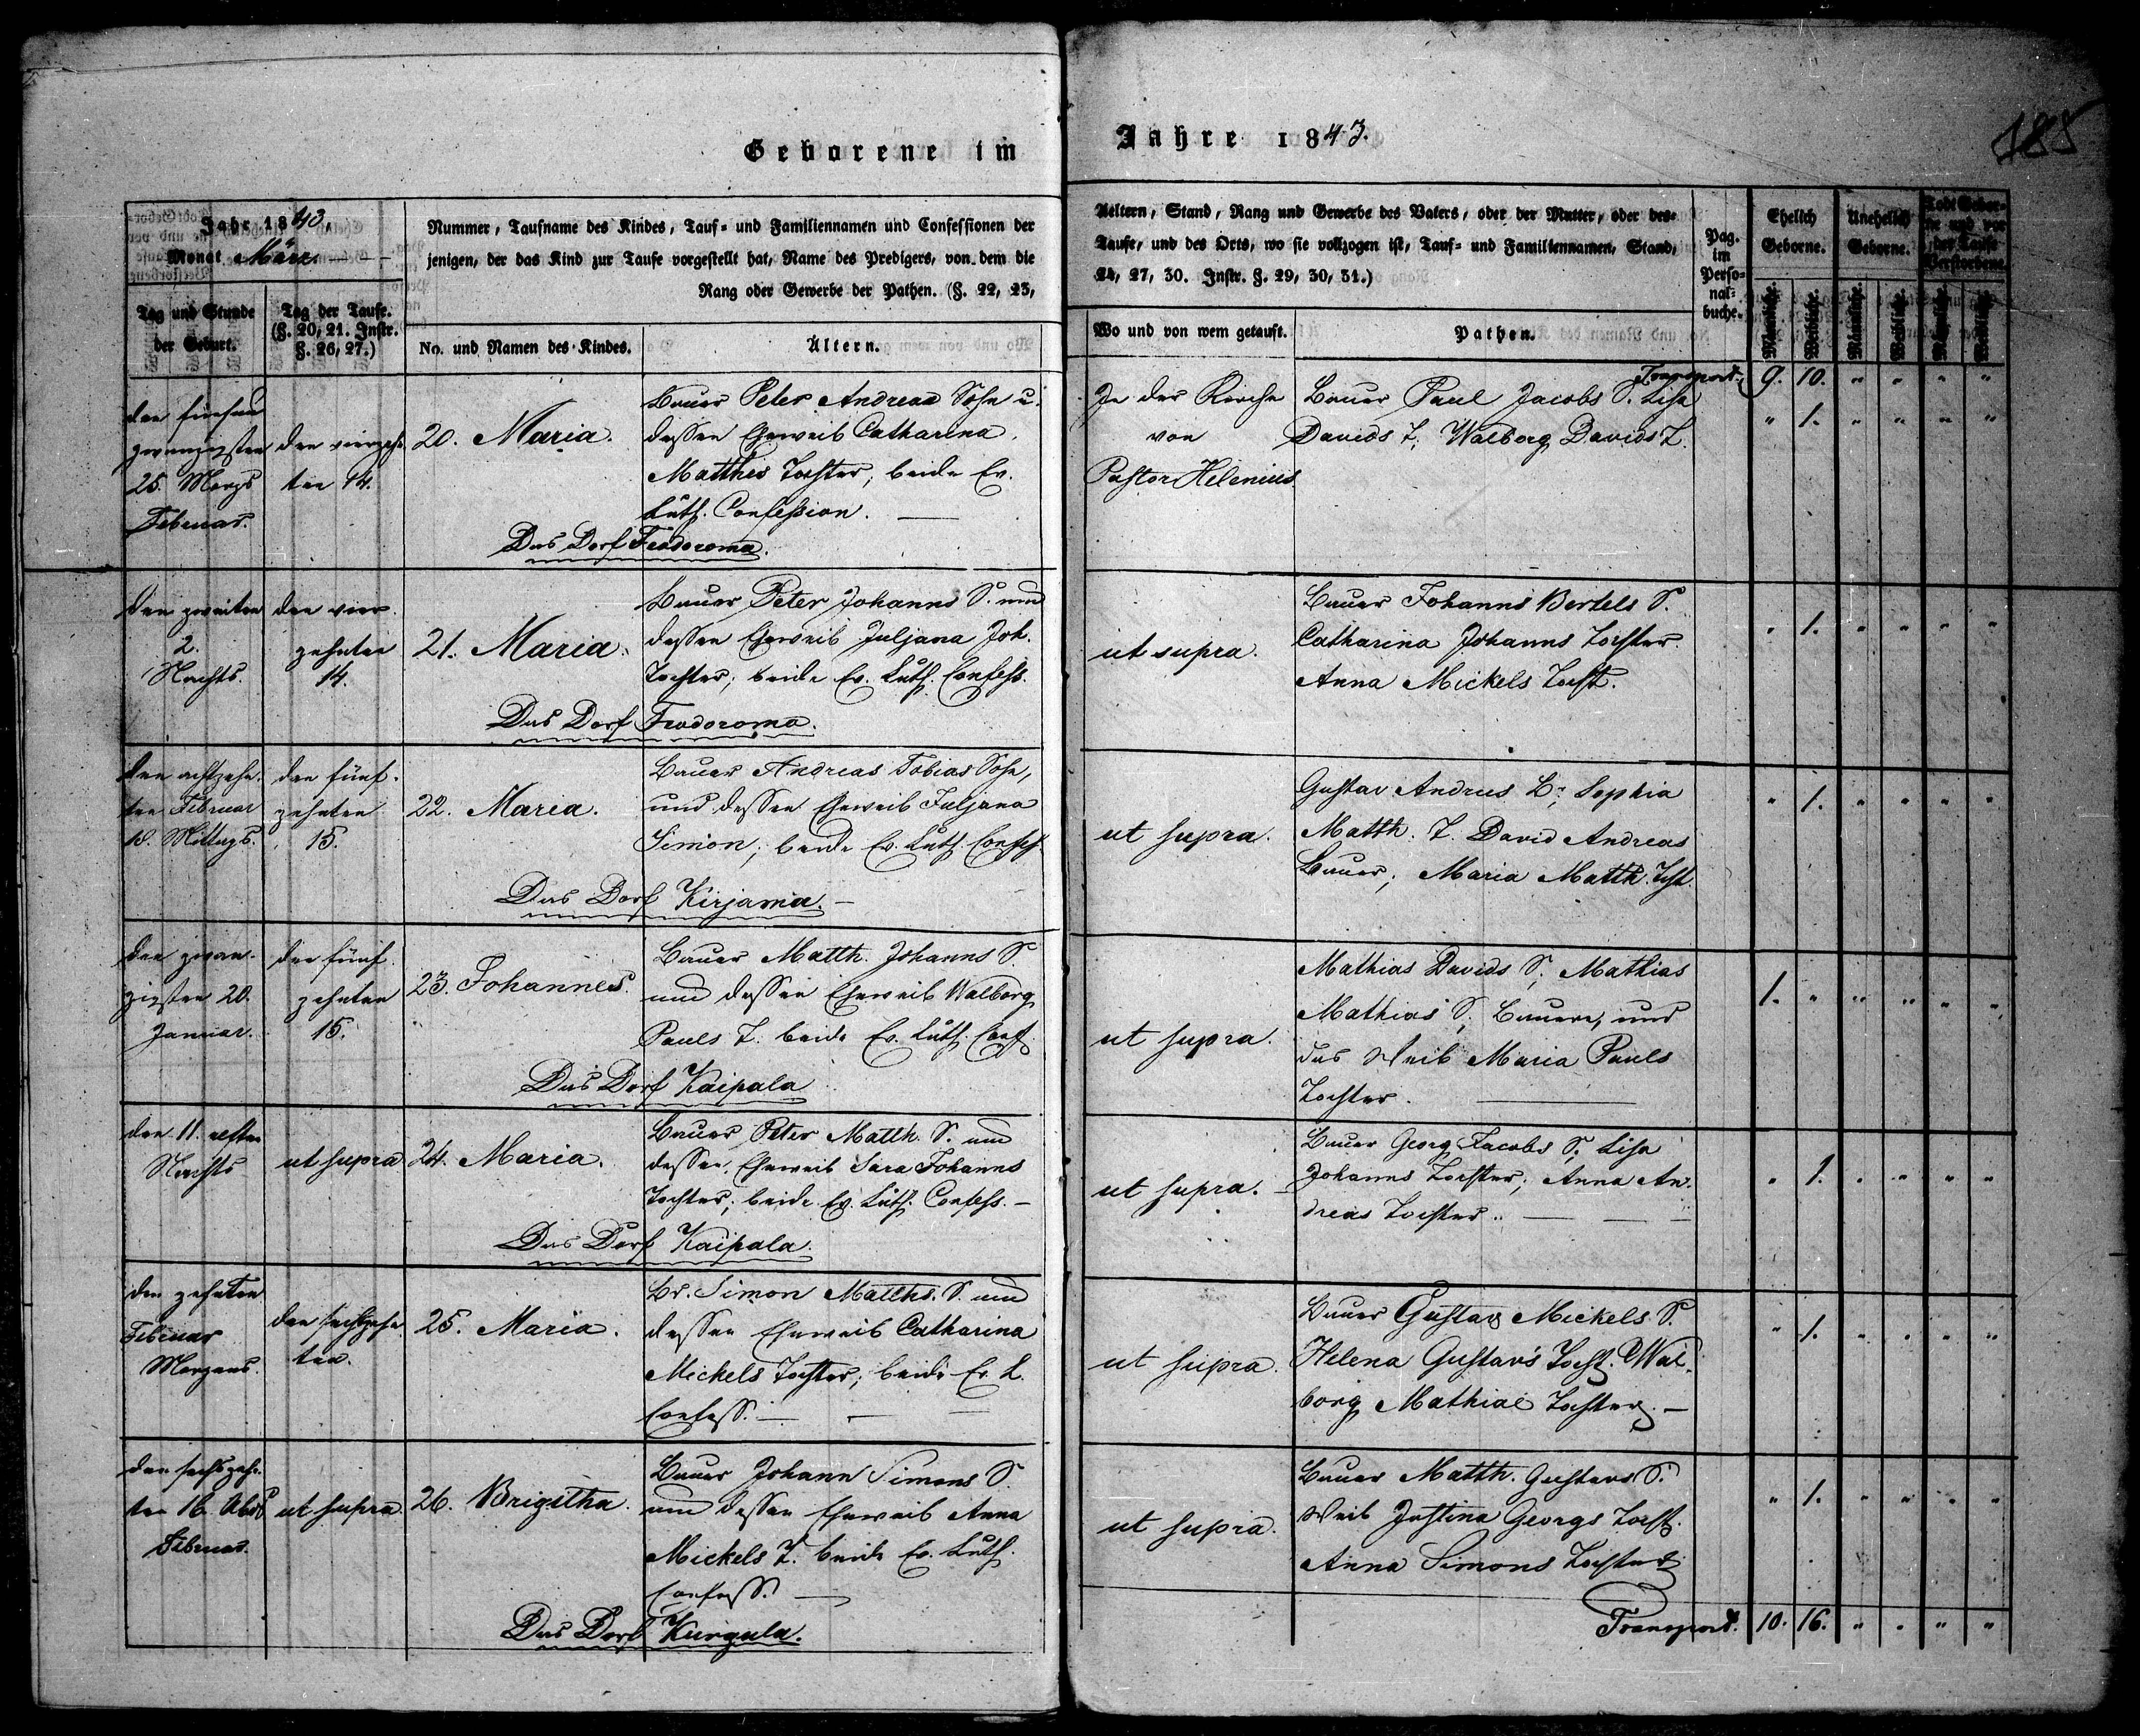 Geborene im Jahre 1843.
185
Jahr 1843.
Monat März.
Nummer, Taufname des Kindes, Tauf- und Familiennamen und Confessionen der
jenigen, der das Kind zur Taufe vorgestellt hat, Name des Predigers, von dem die
Rang oder Gewerbe der Pathen. (§. 22, 23,
Aeltern, Stand, Rang und Gewerbe des Vaters, oder der Mutter, oder des-
Taufe, und des Orts, wo sie vollzogen ist, Tauf- und Familiennamen, Stand,
24, 27, 30. Instr. §. 29, 30, 31.)
Pag.
im
Perso-
nal-
buche.
Ehelich
Geborne.
Unehelich
Geborne.
Todt Gebor-
ne und vor
der Taufe
Verstorbene.
Tag und Stunde
der Geburt.
Tag der Taufe.
(§. 20, 21. Instr.
§. 26, 27.)
No. und Namen des Kindes.
Ältern.
Wo und von wem getauft.
Pathen.
Männliche.
Weibliche.
Männliche.
Weibliche.
Männliche.
Weibliche.
Transport. 9. 10. " " " "
den fünfund
zwanzigsten
25. Morgs
Februar.
den vierzehn
ten 14.
20. Maria.
Bauer Peter Andreas Sohn u.
dessen Eheweib Catharina
Matthis Tochter, beide Ev.
Luth. Confession.
Das Dorf Feodoroma.
In der Kirche
von
Pastor Helenius
Bauer Paul Jacobs S. Lisa
Davids T. Walborg Davids T.
" 1. " " " "
den zweiten
2.
Nachts.
den vier
zehnten
14.
21. Maria.
Bauer Peter Johanns S. und
dessen Eheweib Juljana Joh.
Tochter; beide Ev. Luth. Confess.
Das Dorf Feodoroma.
ut supra.
Bauer Johanns Bertels S.
Catharina Johanns Tochter.
Anna Mickels Tocht.
" 1. " " " "
den achtzehn-
ten Februar
18. Mittags.
den fünf-
zehnten
15.
22. Maria.
Bauer Andreas Tobias Sohn,
und dessen Eheweib Juljana
Simon; beide Ev. Luth. Confess.
Das Dorf Kirjama.
ut supra.
Gustav Andreas Br. Sophia
Matth. T. David Andreas
Bauer; Maria Matth. Tcht.
" 1. " " " "
den zwan-
zigsten 20.
Januar.
den fünf-
zehnten
15.
23. Johannes.
Bauer Matth. Johanns S.
und dessen Eheweib Walborg
Pauls T. beide Ev. Luth. Conf.
Das Dorf Kaipala
ut supra.
Mathias Davids S; Mathias
Mathias S. Bauern, und
das Weib Maria Pauls
Tochter.
1. " " " " "
den 11. elften
Nachts
ut supra
24. Maria.
Bauer Peter Matth. S. und
dessen Eheweib Sara Johanns
Tochter; beide Ev. Luth. Confess.
Das Dorf Kaipala.
ut supra.
Bauer Georg Jacobs S; Lisa
Johanns Tochter; Anna An-
dreas Tochter.
" 1. " " " "
den zehnten
Februar
Morgens.
den sechszehn
ten.
25. Maria.
Br. Simon Matths. S. und
dessen Eheweib Catharina
Mickels Tochter; beide Ev. L.
Confess.
ut supra.
Bauer Gustavs Mickels S.
Helena Gustavs Tocht. Wal-
borg Mathiae Tochter.
" 1. " " " "
den sechszehn-
ten 16. Abds
Februar.
ut supra.
26. Brigitha.
Bauer Johann Simons S.
und dessen Eheweib Anna
Mickels T. beide Ev. Luth.
Confess.
Das Dorf Kurgula.
ut supra.
Bauer Matth. Gustavs S.
Weib Justina Georgs Tocht.
Anna Simons Tochter
" 1. " " " "
Transport. 10. 16. " " " "